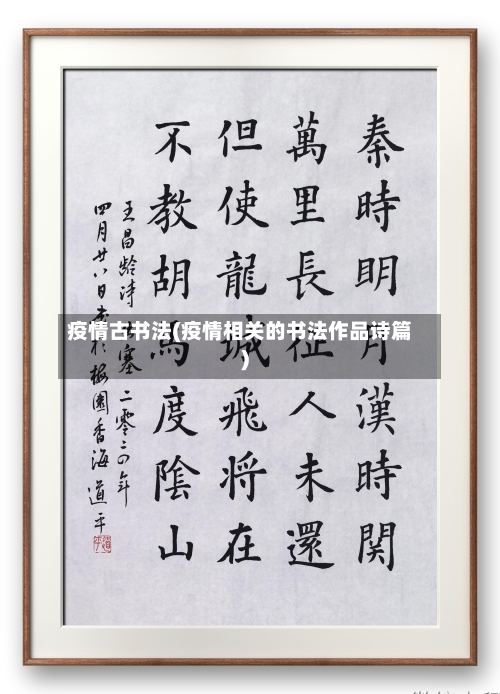 秦時明月漢時関
萬里長征人未還
但使龍城飛将在
不教胡馬度陰山
王昌齡诗 塞 二零二 年
四月廿八日 於梅園香海 道平
疫情古书法(疫情相关的书法作品诗篇
)